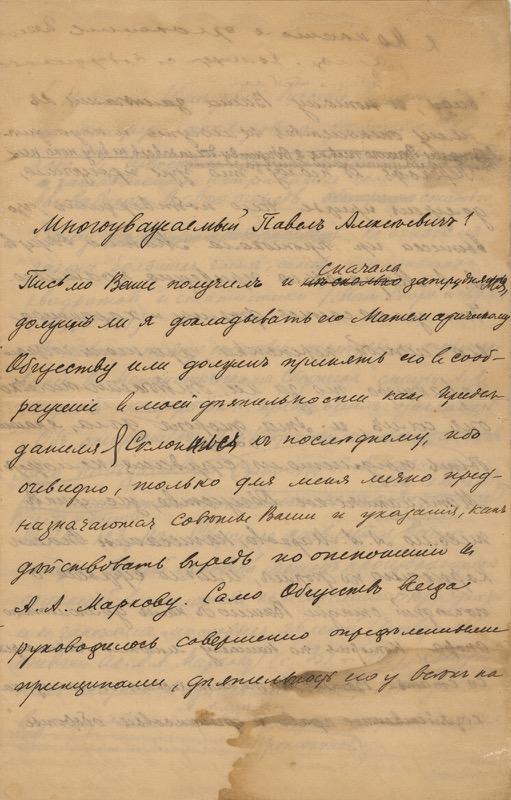 Многоуважаемый Павелъ Алексѣевичъ!
Письмо Ваше получилъ и сначала затруднялся,
долженъ ли я докладывать его Математическому
Обществу или долженъ принять его въ сооб-
раженіе въ моей дѣятельности какъ предсѣ-
дателя. Склоняюсь къ послѣднему, ибо
очевидно, только для меня лично пред-
назначаются совѣты Ваши и указанія, какъ
дѣйствовать впредь по отношенію къ
А. А. Маркову. Само Общество всегда
руководилось совершенно опредѣленными
принципами, дѣятельность его у всѣхъ на